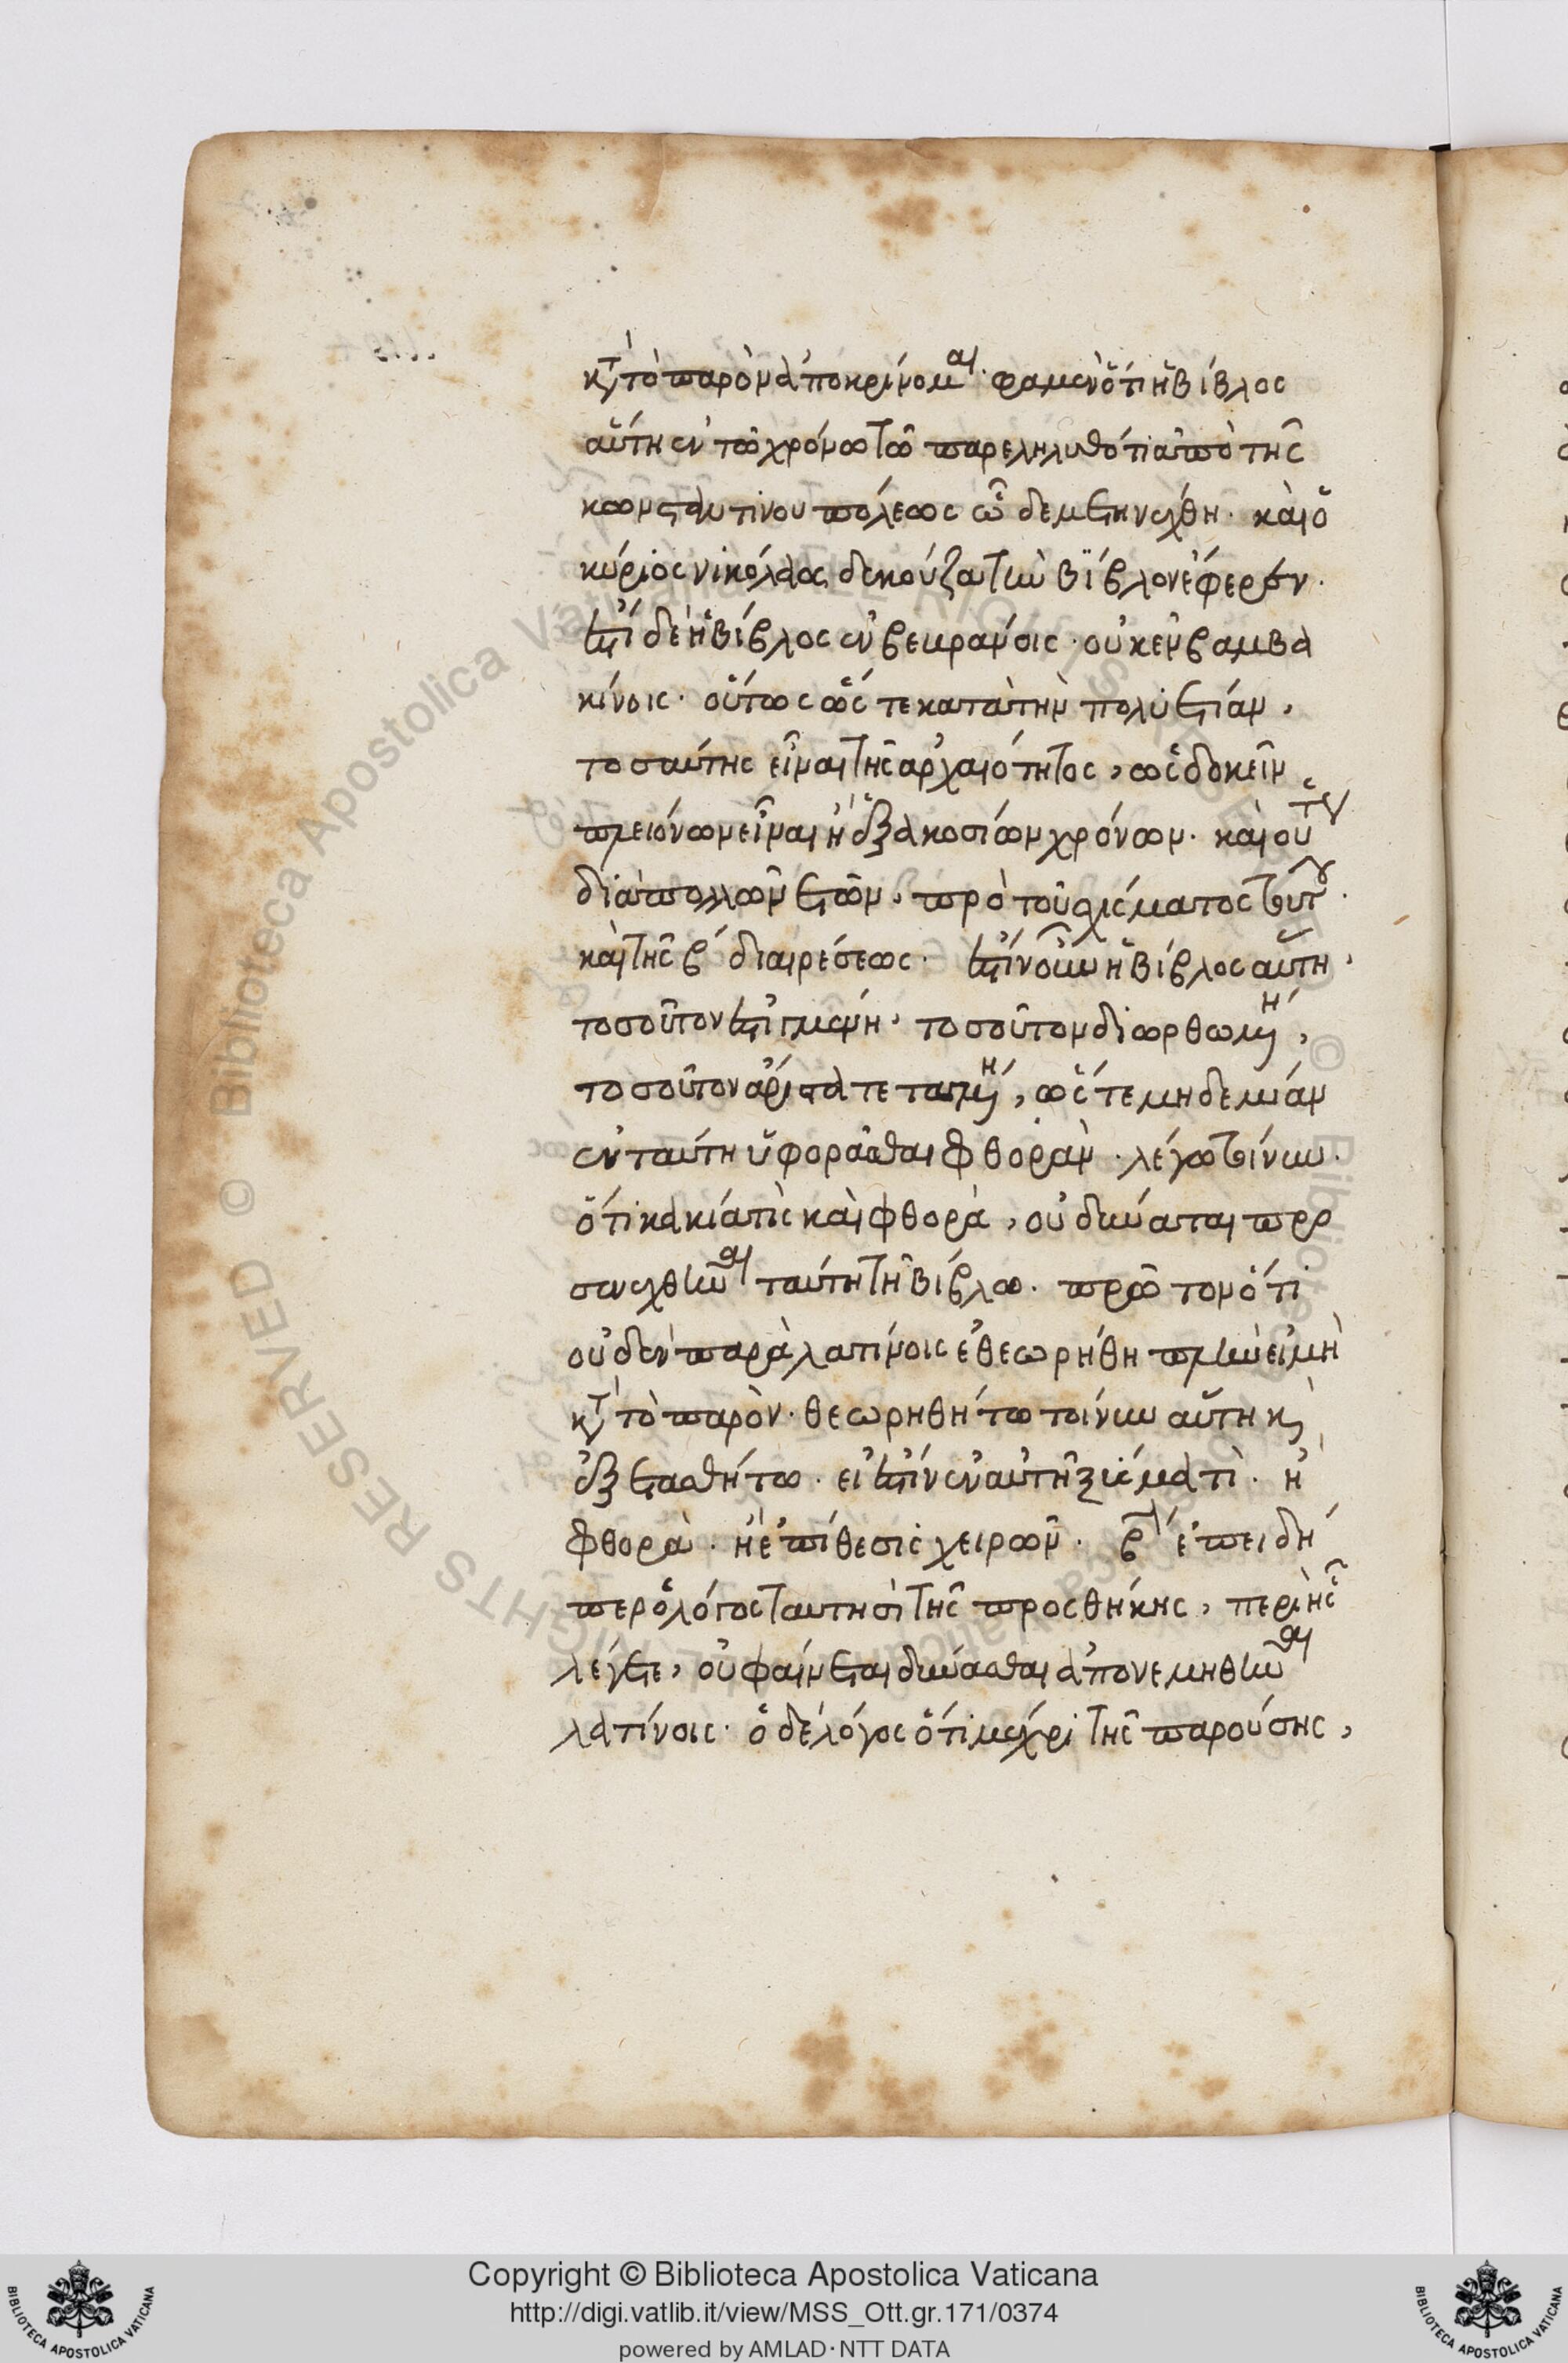 κατὰ τὸ παρὸν ἀποκρίνομαι· φαμὲν ὅτι ἡ βίβλος
αὕτη ἐν τῶ χρόνω τῶ παρεληλυθότι ἀπὸ τῆς
κωνσταντίνου πόλεως ὧδε μετηνέχθη· καὶ ὁ
κύριος νικόλαος δεκούζα τὴν βίβλον ἔφερεν·
ἔστι δὲ ἡ βίβλος ἐν βεκράνοις· οὐκ ἐν βαμβα
κίνοις· οὕτως ὥς τε κατὰ τὴν πολυετίαν,
τοσαύτης εἶναι τῆς ἀρχαιότητος, ὡς δοκεῖν
πλειόνων εἶναι ἢ ἑξακοσίων χρόνων· καὶ οὕτω
διὰ πολλῶν ἐτῶν, πρὸ τοῦ σχίσματος τούτου·
καὶ τῆς β διαιρέσεως· ἔστιν οὖν ἡ βίβλος αὕτη,
τοσοῦτον ἐστιγμένη, τοσοῦτον διωρθωμένη,
τοσοῦτον ἄριστα τεταγμένη, ὥς τε μηδεμίαν
ἐν ταύτη ὑφορᾶσθαι φθορὰν· λέγω τοίνυν·
ὅτι κακία τὶς καὶ φθορὰ, οὐ δύναται προ
σενεχθῆναι ταύτη τῆ βίβλω· πρῶτον ὅτι
οὐδὲν παρὰ λατίνοις ἐθεωρήθη πλὴν εἰ μὴ
κατὰ τὸ παρὸν· θεωρηθήτω τοίνυν αὕτη καὶ
ἐξετασθήτω· εἰ ἔστιν ἐν αὐτῆ ξύσμα τὶ· ἢ
φθορὰ· ἢ ἐπίθεσις χειρῶν· β ἐπειδή
περ ὁ λόγος ταυτησὶ τῆς προσθήκης, περὶ ἧς
λέγετε, οὐ φαίνεται δύνασθαι ἀπονεμηθῆναι
λατίνοις· ὁ δὲ λόγος ὅτι μέχρι τῆς παρούσης,
Copyright © Biblioteca Apostolica Vaticana
http://digi.vatlib.it/view/MSS_Ott.gr.171/0374
powered by AMLAD·NTT DATA